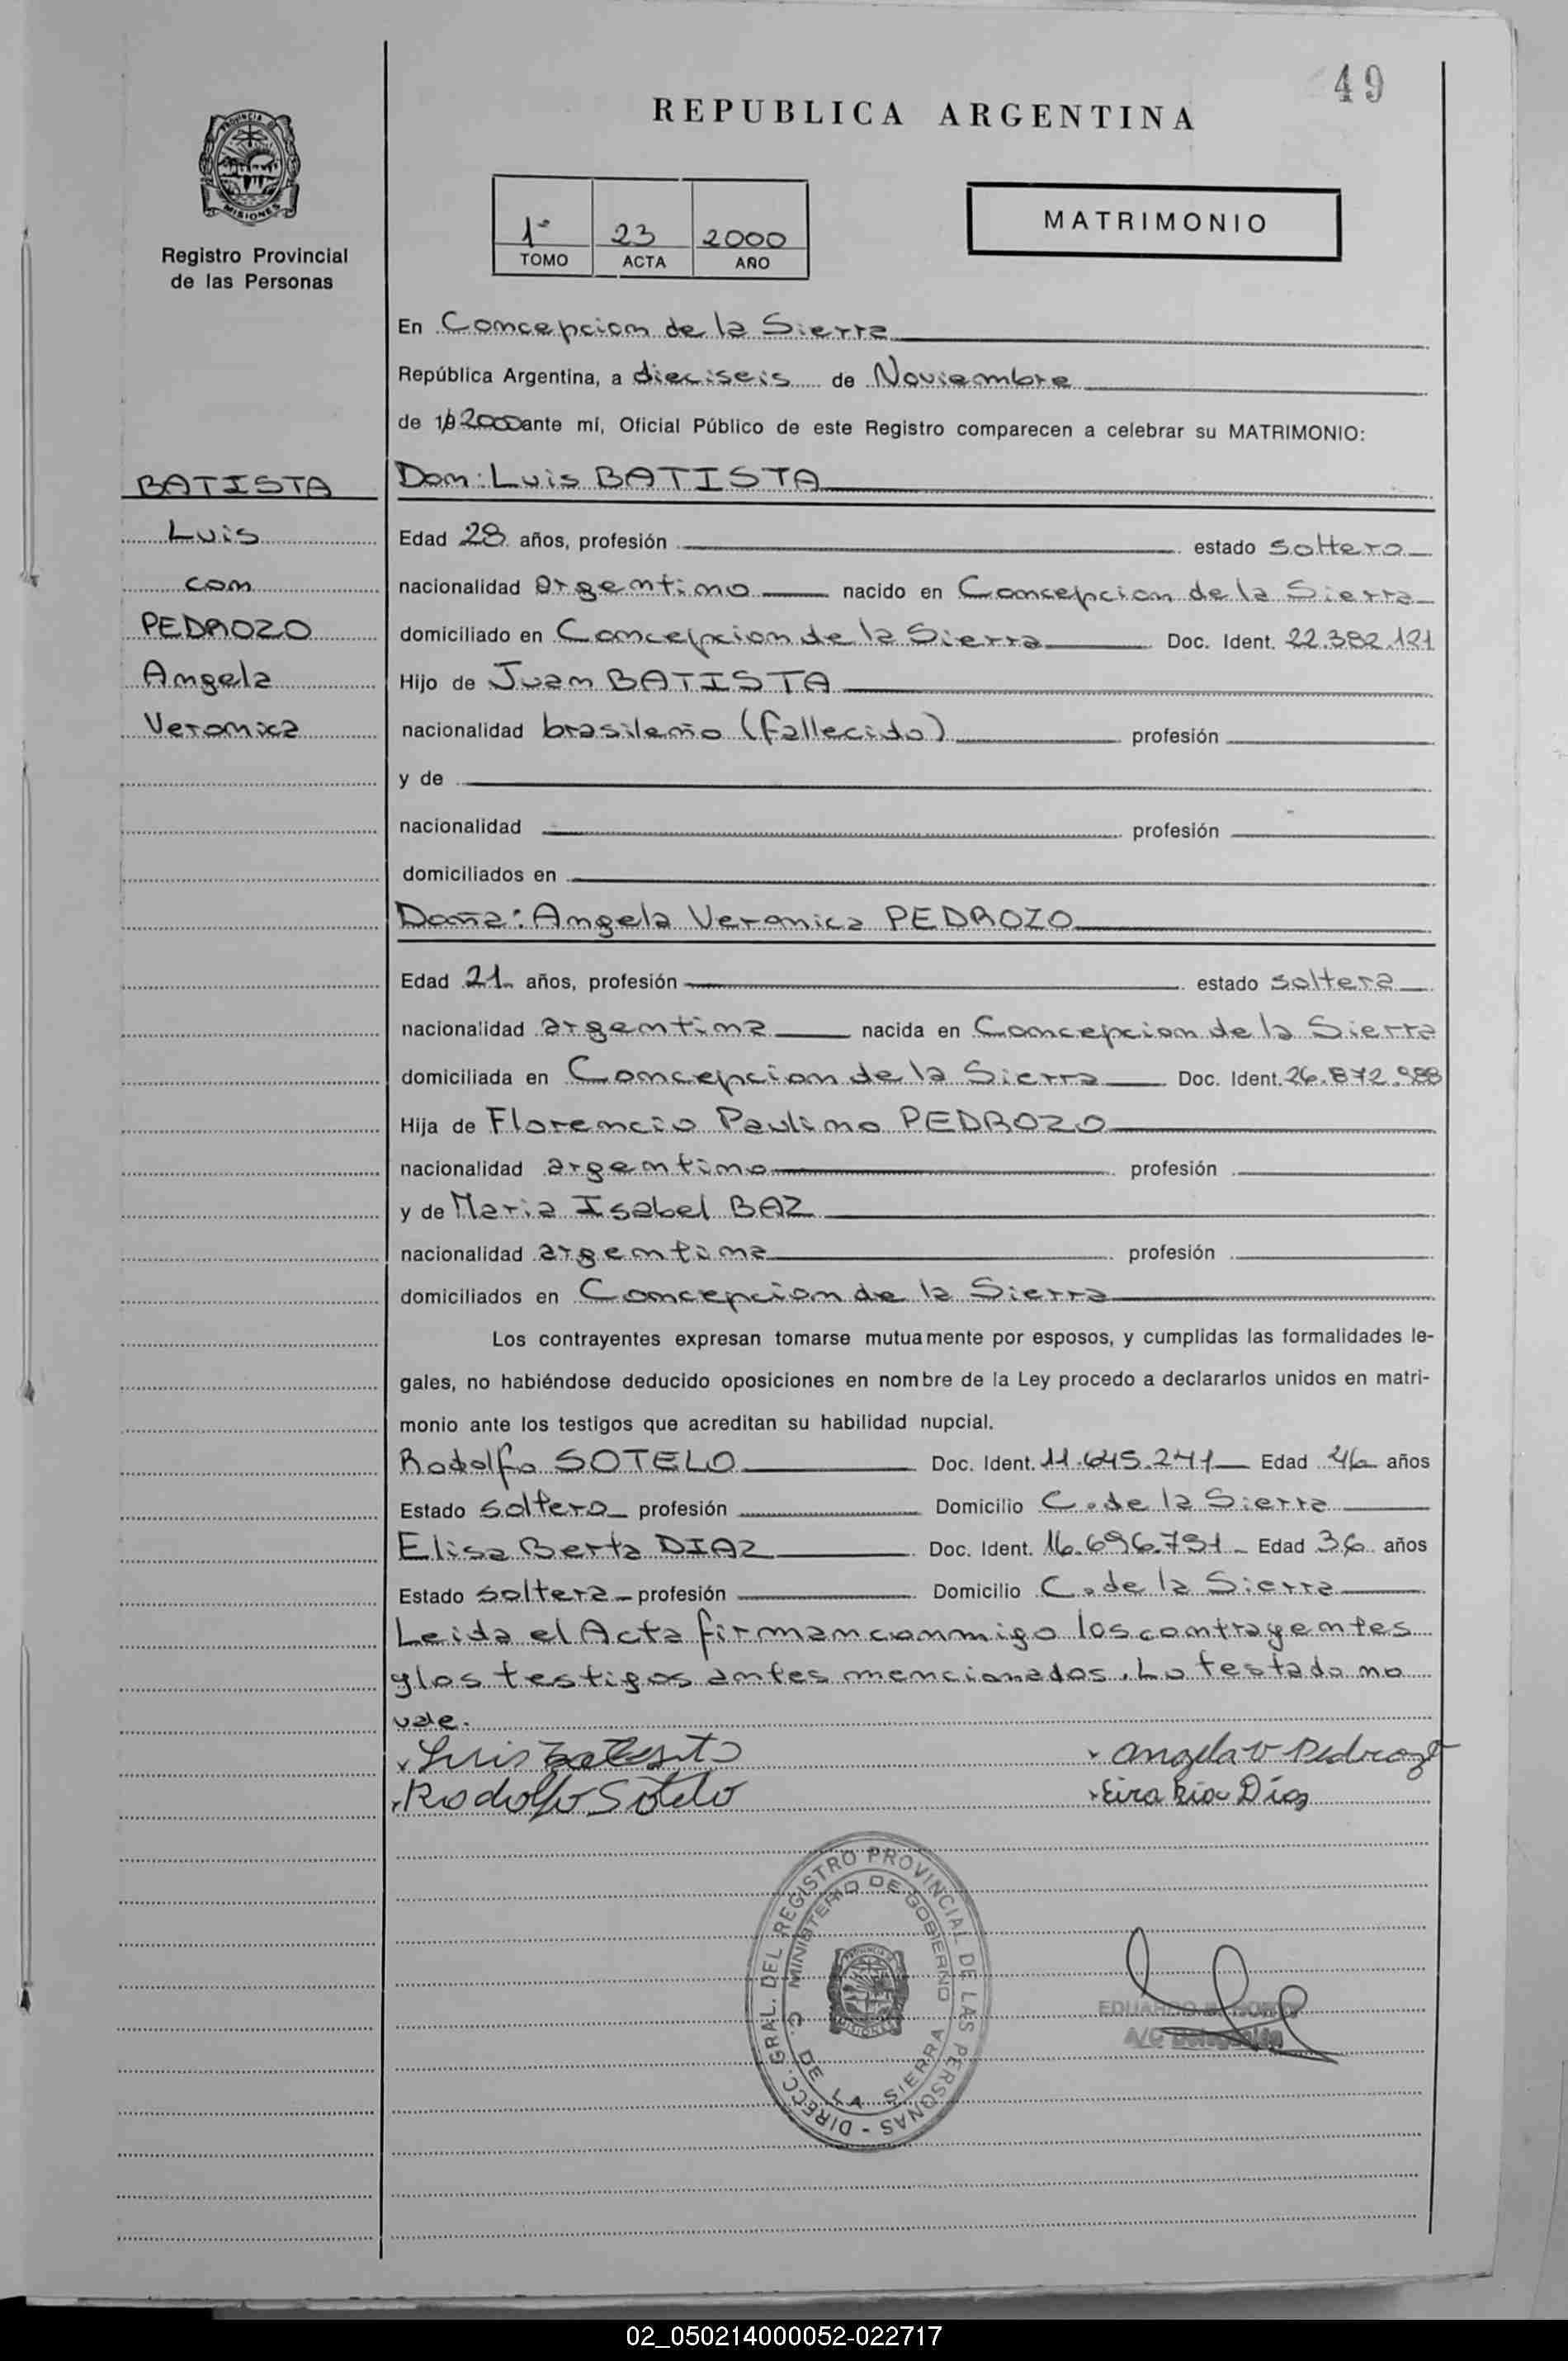 49
REPUBLICA ARGENTINA
PROVINCIA DE
MISIONES
Registro Provincial
de las Personas
1º 23 2000
TOMO ACTA AÑO
MATRIMONIO
En Concepcion de la Sierra
República Argentina, a dieciseis de Noviembre
de 19 2000 ante mí, Oficial Público de este Registro comparecen a celebrar su MATRIMONIO:
BATISTA
Luis
con
PEDROZO
Angela
Veronica
Don: Luis BATISTA
Edad 28 años, profesión estado soltero
nacionalidad argentino nacido en Concepcion de la Sierra
domiciliado en Concepcion de la Sierra Doc. Ident. 22.382.121
Hijo de Juan BATISTA
nacionalidad brasileño (fallecido) profesión
y de
nacionalidad profesión
domiciliados en
Doña: Angela Veronica PEDROZO
Edad 21 años, profesión estado soltera
nacionalidad argentina nacida en Concepcion de la Sierra
domiciliada en Concepcion de la Sierra Doc. Ident. 26.872.988
Hija de Florencio Paulino PEDROZO
nacionalidad argentino profesión
y de Maria Isabel BAZ
nacionalidad argentina profesión
domiciliados en Concepcion de la Sierra
Los contrayentes expresan tomarse mutuamente por esposos, y cumplidas las formalidades le-
gales, no habiéndose deducido oposiciones en nombre de la Ley procedo a declararlos unidos en matri-
monio ante los testigos que acreditan su habilidad nupcial.
Rodolfo SOTELO Doc. Ident. 11.645.241 Edad 46 años
Estado soltero profesión Domicilio C. de la Sierra
Elisa Berta DIAZ Doc. Ident. 16.696.791 Edad 36 años
Estado soltera profesión Domicilio C. de la Sierra
Leida el Acta firman conmigo los contrayentes
y los testigos antes mencionados. Lo testado no
vale.
Luis Batista Angela V Pedrozo
Rodolfo Sotelo Díaz
DIRECC. GRAL. DEL REGISTRO PROVINCIAL DE LAS PERSONAS -
MINISTERIO DE GOBIERNO
C. DE LA SIERRA
PROVINCIA DE
MISIONES
EDUARDO
A/C Delegación
02_050214000052-022717